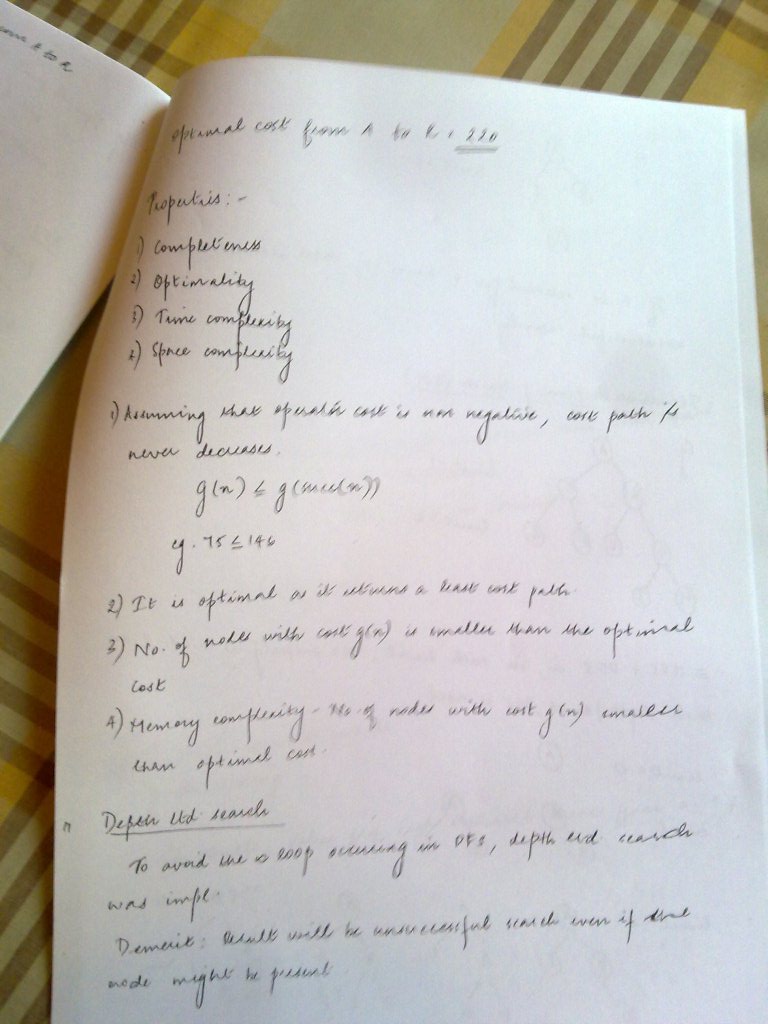 from A to R
Optimal cost from A to R : 220
Properties:-
1) Completeness
2) Optimality
3) Time complexity
4) Space complexity
1) Assuming that operator cost is non negative, cost path is
never decreases.
g(n) ≤ g(succ(n))
eg. 75 ≤ 146
2) It is optimal as it returns a least cost path.
3) No. of nodes with cost g(n) is smaller than the optimal
cost
4) Memory complexity - No. of nodes with cost g(n) smaller
than optimal cost.
Depth ltd search
To avoid the ∞ loop occuring in DFS, depth ltd search
was impl.
Demerit: Result will be unsuccessful search even if the
node might be present